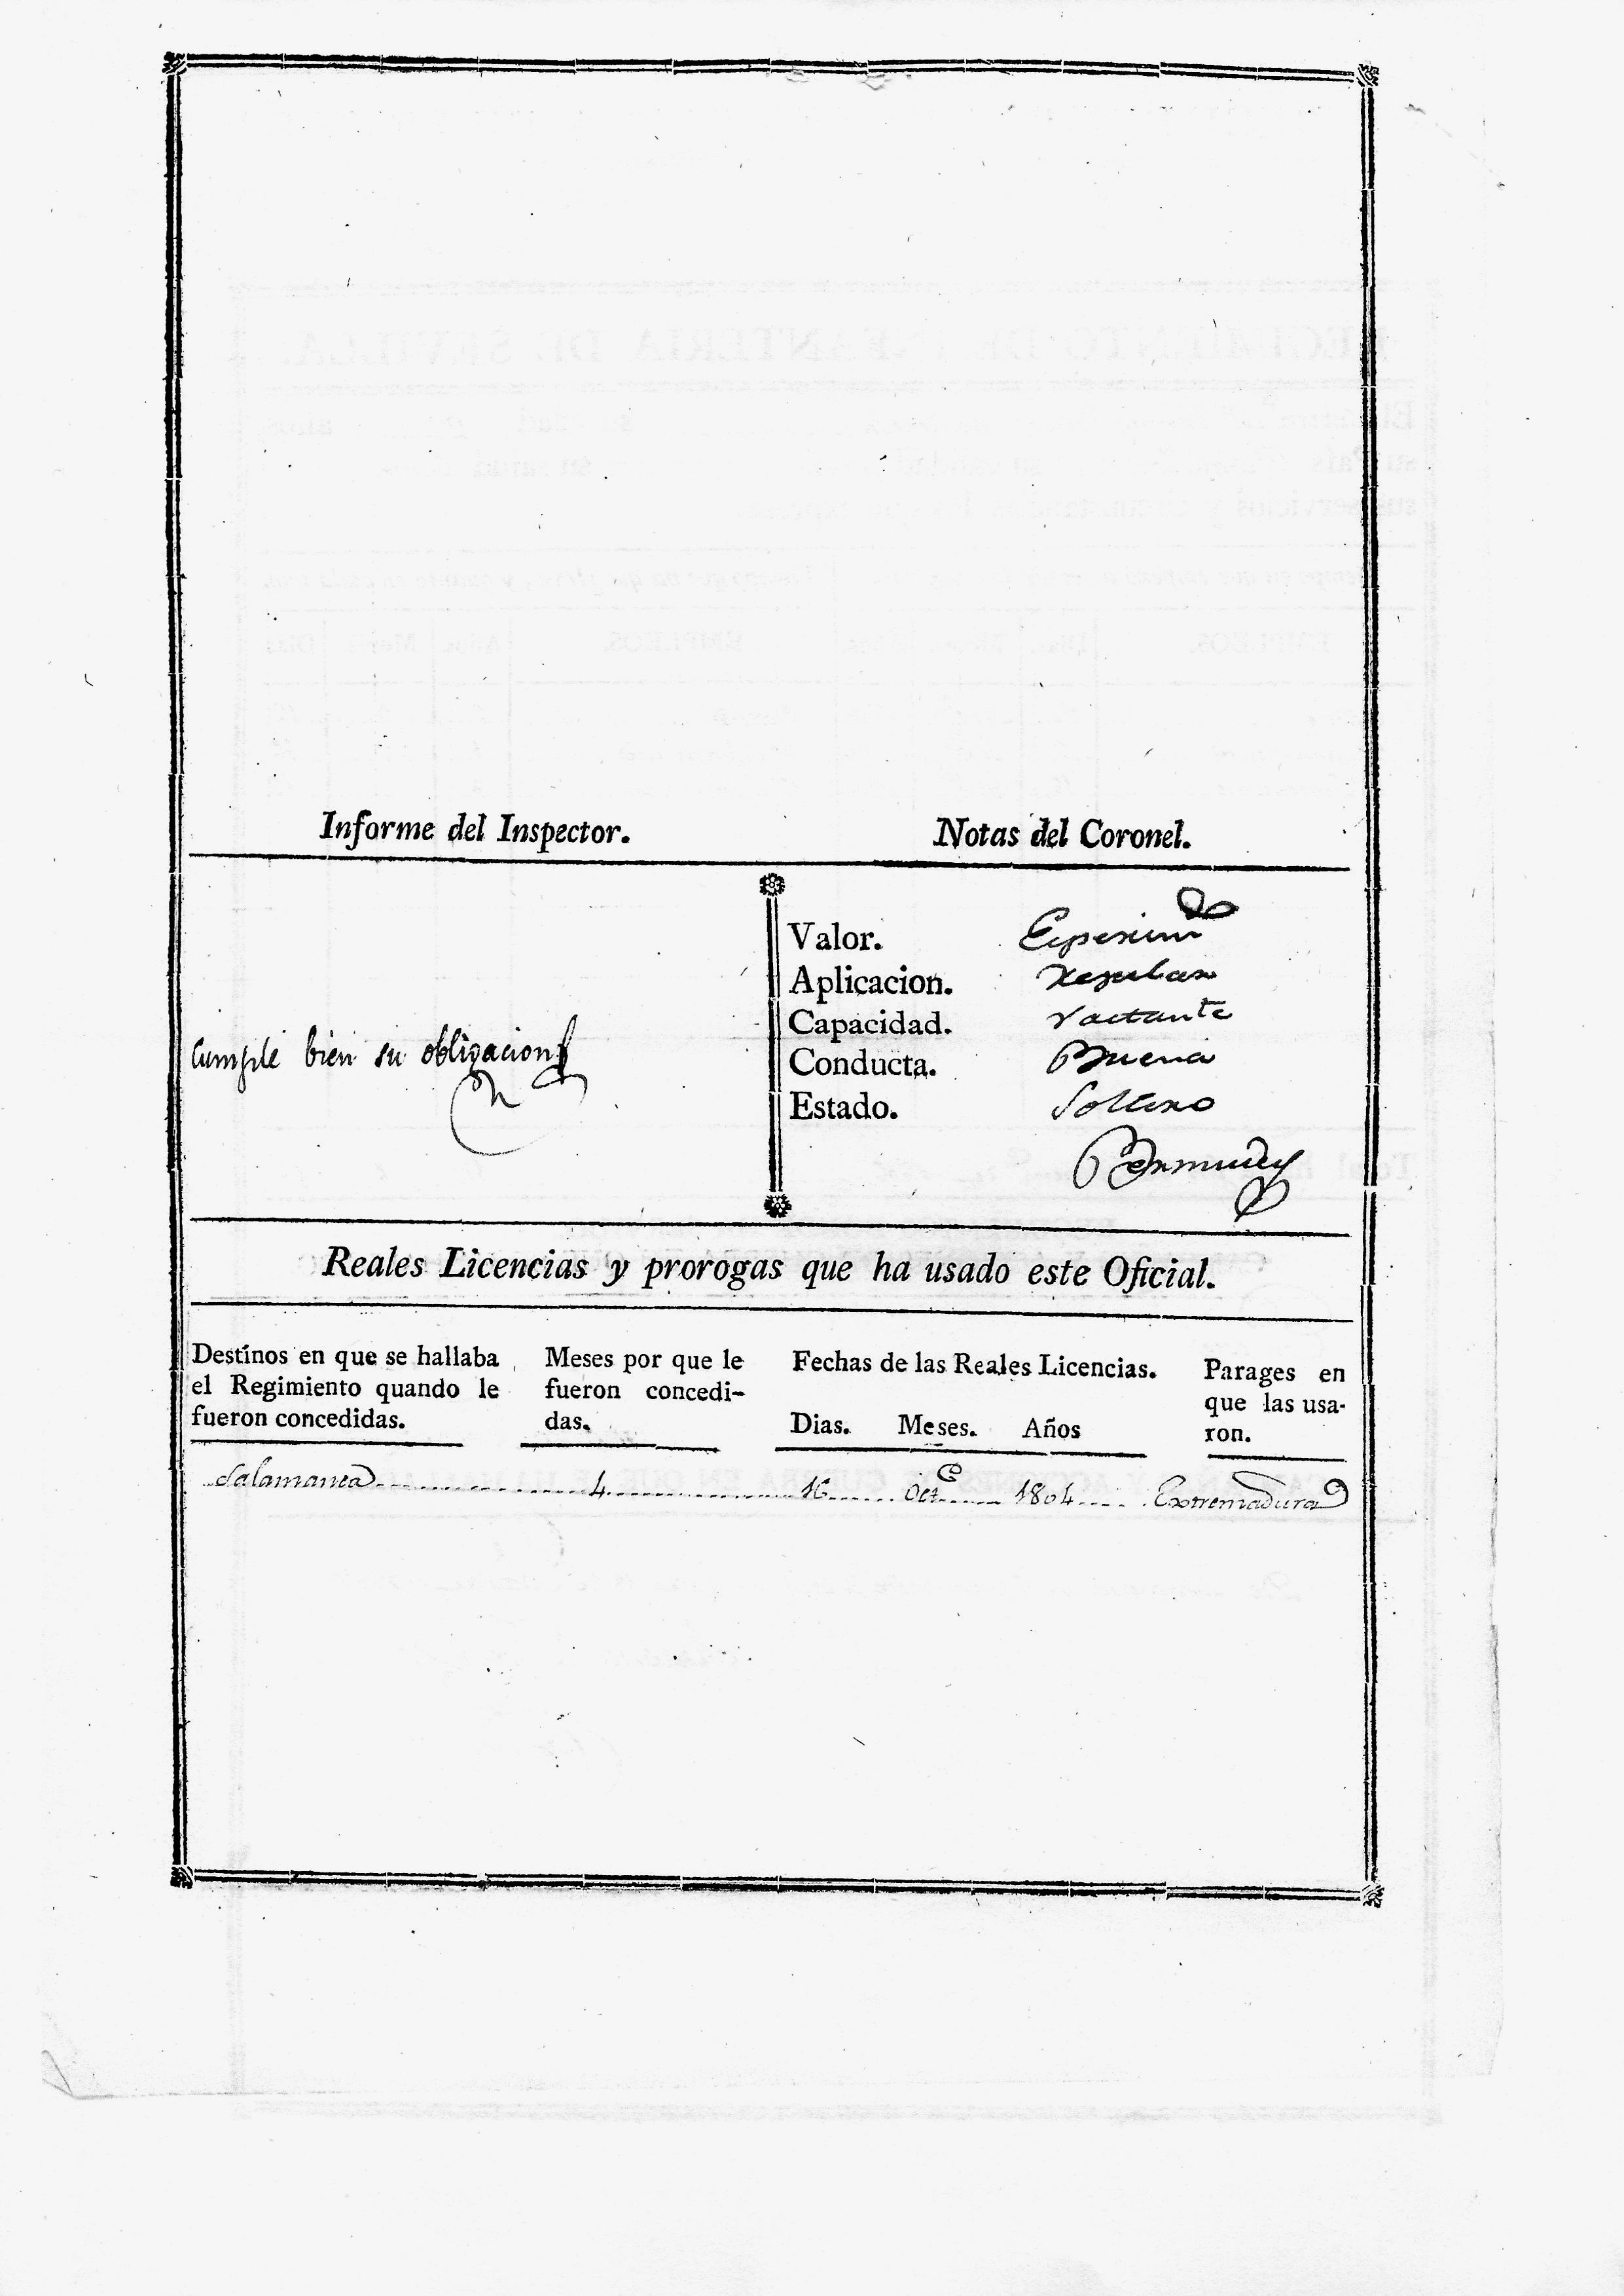 Informe del Inspector.
Notas del Coronel.
Cumple bien su obligacion
Valor. Esperim.do
Aplicacion. Regular
Capacidad. Vastante
Conducta. Buena
Estado. Soltero
Bermudez
Reales Licencias y prorogas que ha usado este Oficial.
Destinos en que se hallaba
el Regimiento quando le
fueron concedidas.
Meses por que le
fueron concedi-
das.
Fechas de las Reales Licencias.
Dias. Meses. Años
Parages en
que las usa-
ron.
Salamanca 4 16 Oct.e 1804 Extremadura